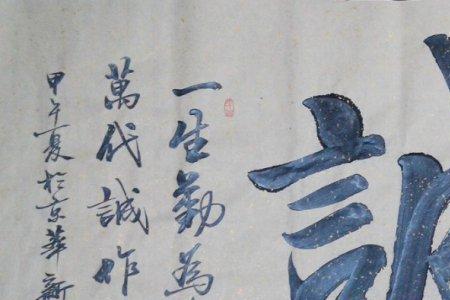 誠
一生勤為
萬代誠作
甲午夏於京華新